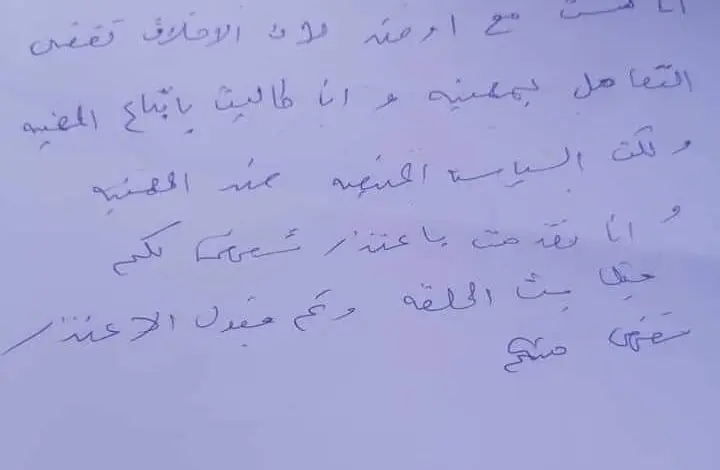 انا لست مع او ضد لان الاخلاق تقضى
التعامل بمهنيه و انا طالبت باتباع المهنيه
و لكن السياسه المتبعه ضد المهنيه
و انا تقدمت باعتذار شخصى لكم
قبل بث الحلقه وتم قبول الاعتذار
شخصى منكم